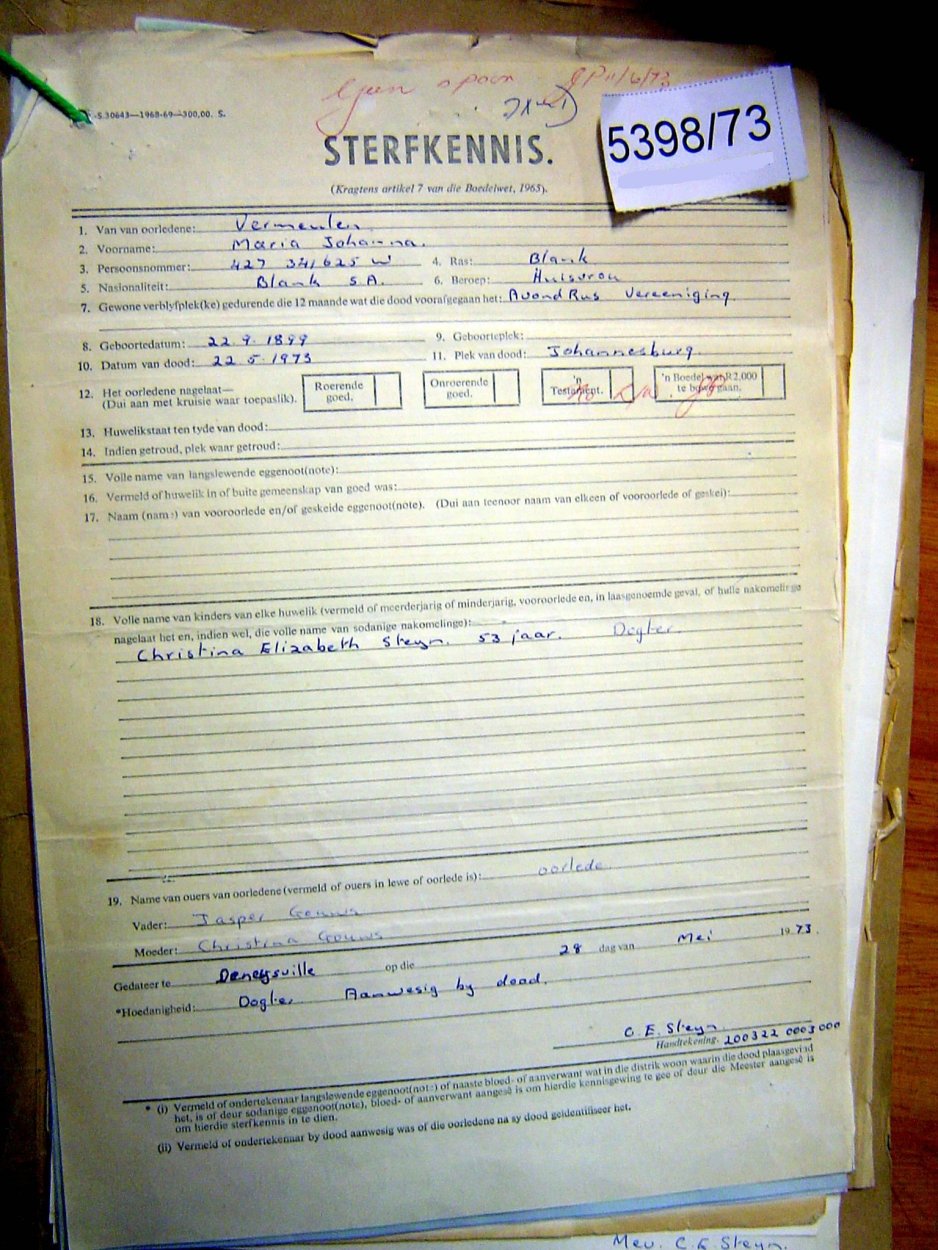 Geen spoor
11/6/73
-S.30643—1968-69—300,00. S.
5398/73
STERFKENNIS.
(Kragtens artikel 7 van die Boedelwet, 1965).
1. Van van oorledene: Vermeulen.
2. Voorname: Maria Johanna.
3. Persoonsnommer: 427 341625 W 4. Ras: Blank
5. Nasionaliteit: Blank S A. 6. Beroep: Huisvrou
7. Gewone verblyfplek(ke) gedurende die 12 maande wat die dood voorafgegaan het: Avond Rus Vereeniging
8. Geboortedatum: 22. 9. 1899 9. Geboorteplek:
10. Datum van dood: 22 5. 1973 11. Plek van dood: Johannesburg.
12. Het oorledene nagelaat—
(Dui aan met kruisie waar toepaslik).
Roerende goed.
Onroerende goed.
'n Testament.
'n Boedel wat R2,000 te bowe gaan.
13. Huwelikstaat ten tyde van dood:
14. Indien getroud, plek waar getroud:
15. Volle name van langslewende eggenoot(note):
16. Vermeld of huwelik in of buite gemeenskap van goed was:
17. Naam (name) van vooroorlede en/of geskeide eggenoot(note). (Dui aan teenoor naam van elkeen of vooroorlede of geskei):
18. Volle name van kinders van elke huwelik (vermeld of meerderjarig of minderjarig, vooroorlede en, in laasgenoemde geval, of hulle nakomelinge
nagelaat het en, indien wel, die volle name van sodanige nakomelinge):
Christina Elizabeth Steyn. 53 jaar. Dogter.
19. Name van ouers van oorledene (vermeld of ouers in lewe of oorlede is): oorlede
Vader: Jasper Gouws
Moeder: Christina Gouws
Gedateer te Deneysville op die 28 dag van Mei 19 73.
*Hoedanigheid: Dogter Aanwesig by dood.
C. E. Steyn
Handtekening. 200322 0003 000
* (i) Vermeld of ondertekenaar langslewende eggenoot(note) of naaste bloed- of aanverwant wat in die distrik woon waarin die dood plaasgevind
het, is of deur sodanige eggenoot(note), bloed- of aanverwant aangesê is om hierdie kennisgewing te gee of deur die Meester aangesê is
om hierdie sterfkennis in te dien.
(ii) Vermeld of ondertekenaar by dood aanwesig was of die oorledene na sy dood geïdentifiseer het.
Mev. C. E. Steyn.